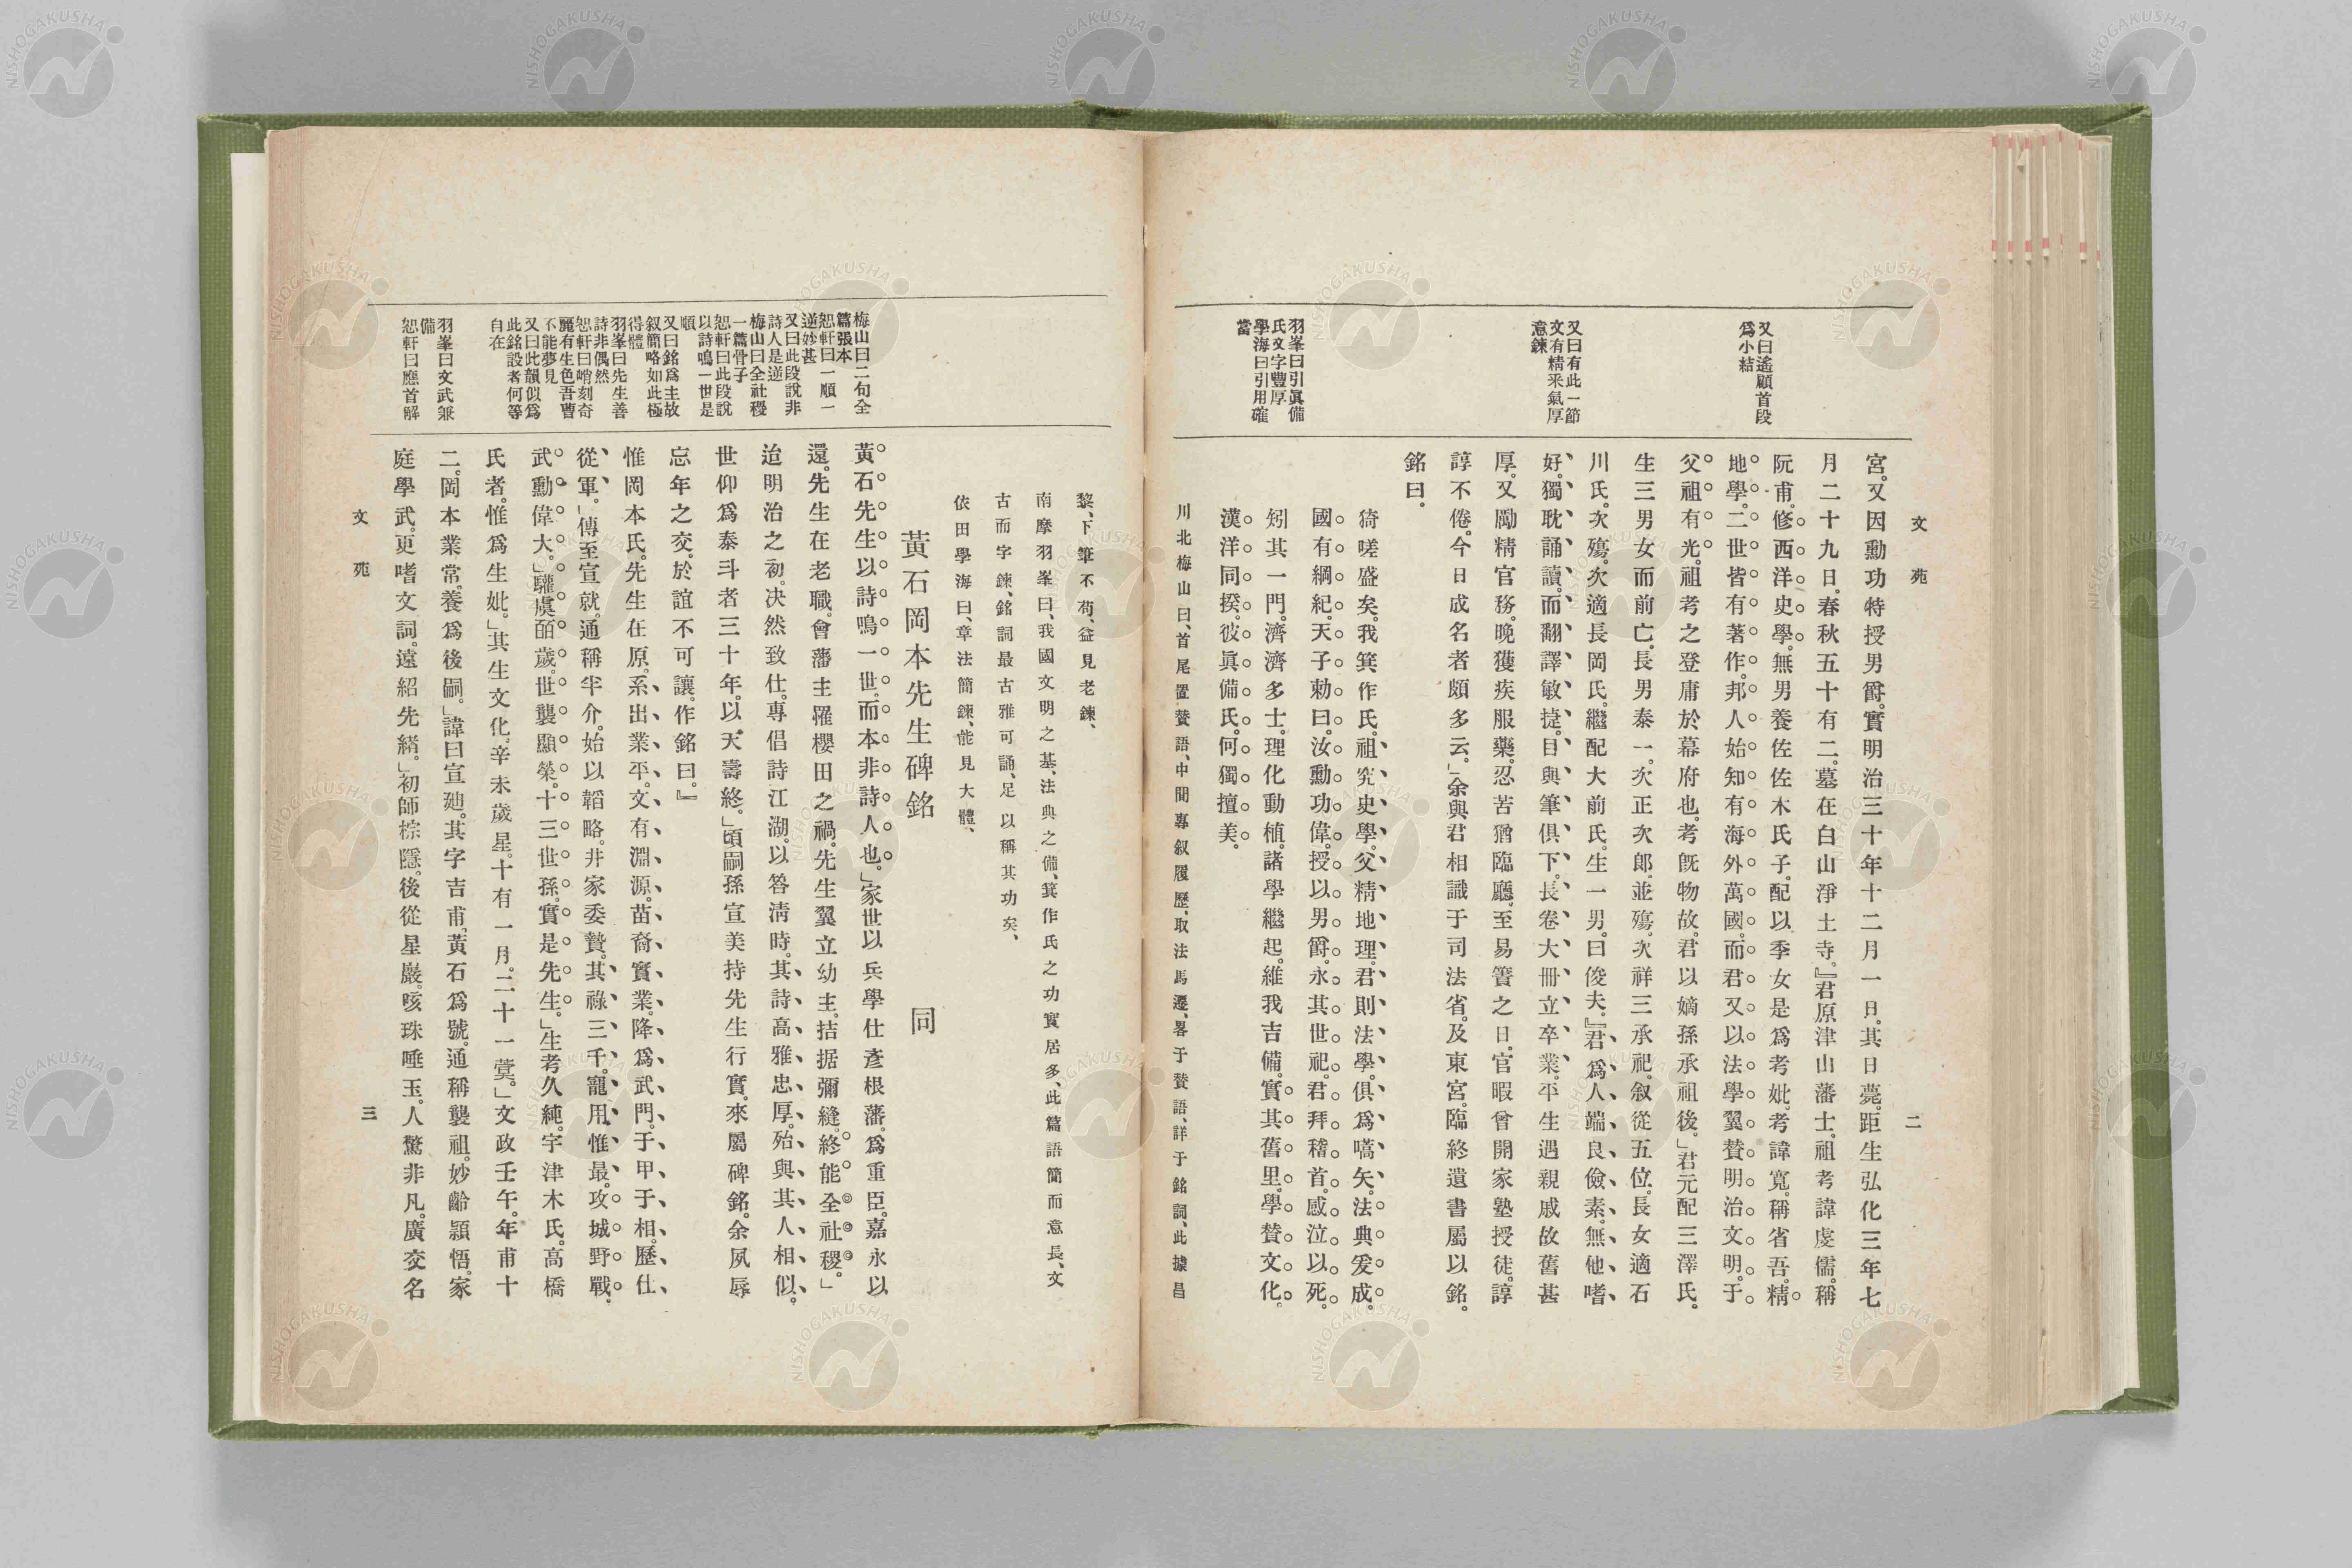 文苑
二
又曰遙顧首段
爲小結
又曰有此一節
文有精釆氣厚
意鍊
羽峯曰引眞備
氏文字豐厚
學海曰引用確
當
宮。又因勳功特授男爵。實明治三十年十二月一日。其日薨。距生弘化三年七
月二十九日。春秋五十有二。墓在白山淨土寺。』君原津山藩士。祖考諱虔儒。稱
阮甫。修西洋史學。無男養佐佐木氏子。配以季女是爲考妣。考諱寬。稱省吾。精
地學。二世皆有著作。邦人始知有海外萬國。而君又以法學翼賛明治文明。于
父祖有光。祖考之登庸於幕府也。考旣物故。君以嫡孫承祖後。」君元配三澤氏。
生三男女而前亡。長男泰一。次正次郎。並殤。次祥三承祀。叙從五位。長女適石
川氏。次殤。次適長岡氏。繼配大前氏。生一男。曰俊夫。』君爲人端良儉素。無他嗜
好。獨耽誦讀。而翻譯敏捷。目與筆俱下。長卷大冊立卒業。平生遇親戚故舊甚
厚。又勵精官務。晚獲疾服藥。忍苦猶臨廳。至易簀之日。官暇曾開家塾授徒。諄
諄不倦。今日成名者頗多云。」余與君相識于司法省。及東宮。臨終遺書屬以銘。
銘曰。
猗嗟盛矣。我箕作氏。祖究史學。父精地理。君則法學。俱爲嚆矢。法典爰成。
國有綱紀。天子勅曰。汝勳功偉。授以男爵。永其世祀。君拜稽首。感泣以死。
矧其一門。濟濟多士。理化動植。諸學繼起。維我吉備。實其舊里。學賛文化。
漢洋同揆。彼眞備氏。何獨擅美。
川北梅山曰、首尾置賛語、中間專叙履歷、取法馬遷、畧于賛語、詳于銘詞、此據昌
黎、下筆不苟、益見老鍊、
南摩羽峯曰、我國文明之基、法典之備、箕作氏之功實居多、此篇語簡而意長、文
古而字鍊、銘詞最古雅可誦、足以稱其功矣、
依田學海曰、章法簡鍊、能見大體、
梅山曰二句全
篇張本
恕軒曰一順一
逆妙甚
又曰此段說非
詩人是逆
梅山曰全社稷
一篇骨子
恕軒曰此段說
以詩鳴一世是
順
又曰銘爲主故
叙簡略如此極
得體
羽峯曰先生善
詩非偶然
恕軒曰峭刻奇
麗有生色吾曹
不能夢見
又曰此韻似爲
此銘設者何等
自在
羽峯曰文武兼
備
恕軒曰應首解
黃石岡本先生碑銘　同
黃石先生以詩鳴一世。而本非詩人也。」家世以兵學仕彥根藩。爲重臣。嘉永以
還。先生在老職。會藩主罹櫻田之禍。先生翼立幼主。拮据彌縫。終能全社稷。」
迨明治之初。決然致仕。專倡詩江湖。以答淸時。其詩高雅忠厚。殆與其人相似。
世仰爲泰斗者三十年。以天壽終。」頃嗣孫宣美持先生行實。來屬碑銘。余夙辱
忘年之交。於誼不可讓。作銘曰。』
惟岡本氏。先生在原。系出業平。文有淵源。苗裔實業。降爲武門。于甲于相。歷仕
從軍。」傳至宣就。通稱半介。始以韜略。井家委贄。其祿三千。寵用惟最。攻城野戰。
武勳偉大。」驩虞皕歲。世襲顯榮。十三世孫。實是先生。」生考久純。宇津木氏。高橋
氏者。惟爲生妣。」其生文化。辛未歲星。十有一月。二十一蓂。」文政壬午。年甫十
二。岡本業常。養爲後嗣。」諱曰宣廸。其字吉甫。黃石爲號。通稱襲祖。妙齡穎悟。家
庭學武。更嗜文詞。遠紹先緒。」初師棕隱。後從星巖。咳珠唾玉。人驚非凡。廣交名
文苑
三